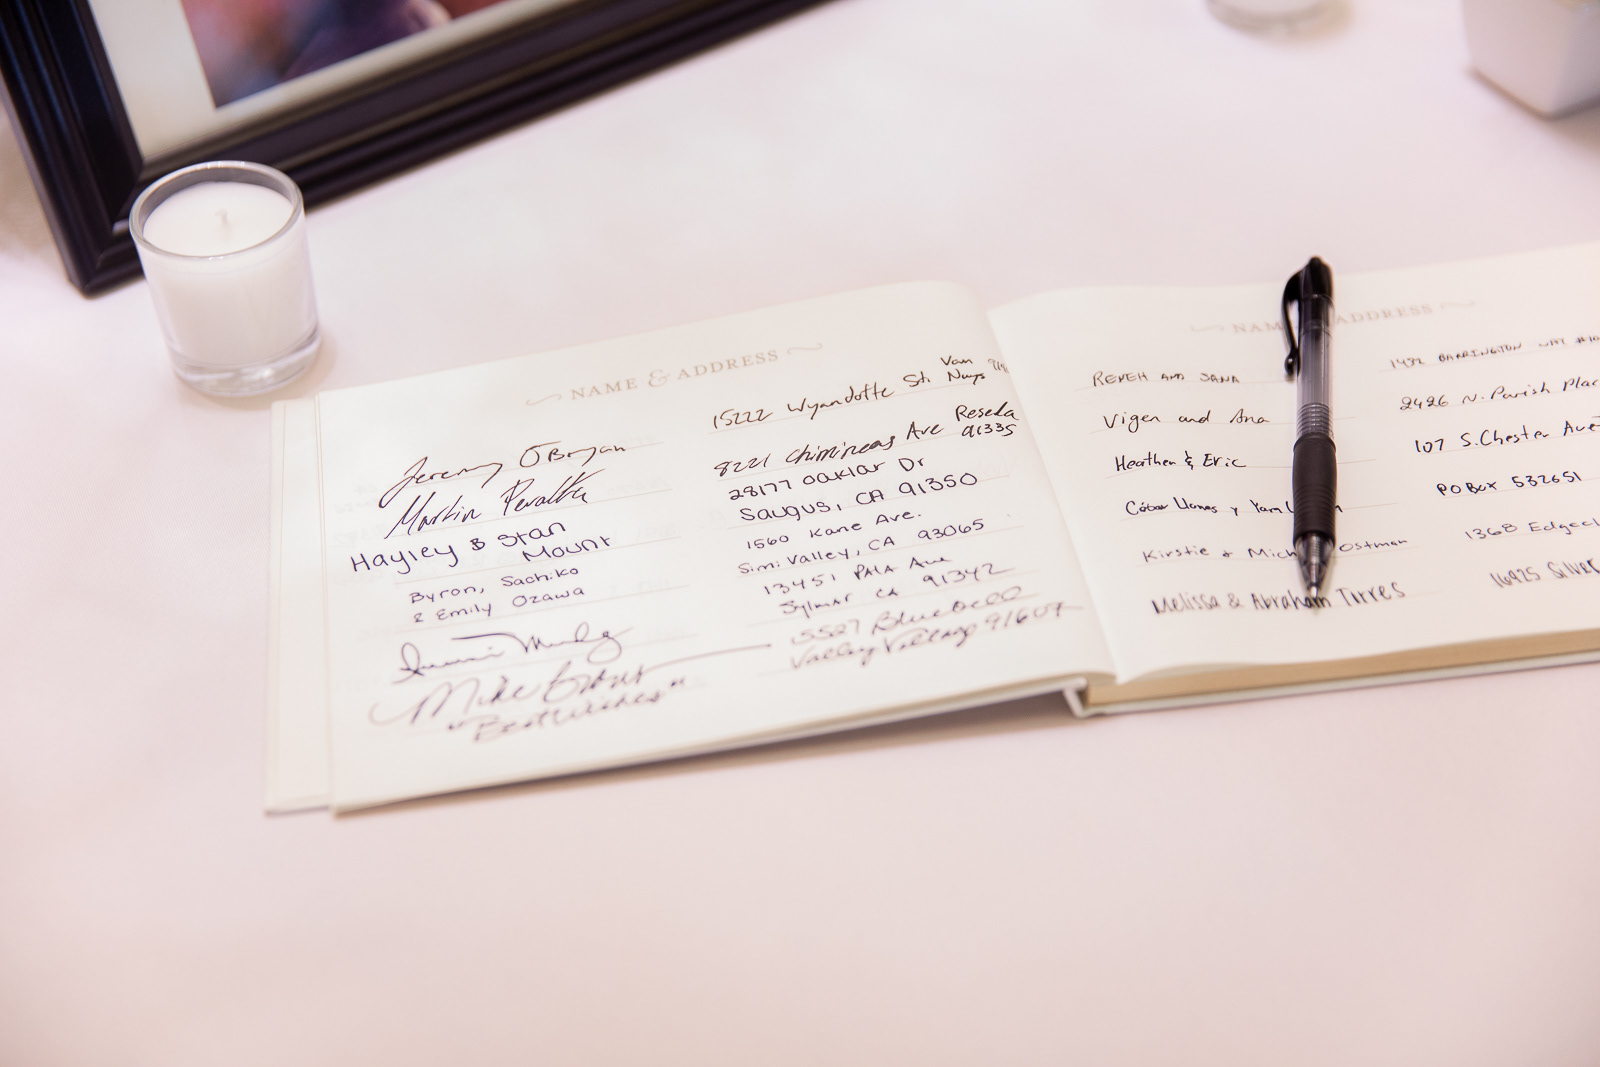 NAME & ADDRESS
Jeremy O'Bryan
15222 Wyandotte St. Van Nuys
Martin Peralta
8221 Chimineas Ave Reseda 91335
Hayley & Stan Mount
28177 Oaklar Dr
Saugus, CA 91350
Byron, Sachiko
& Emily Ozawa
1560 Kane Ave.
Simi Valley, CA 93065
13451 PALA Ave
Sylmar CA 91342
Mike
"Best Wishes"
5527 Bluebell
Valley Village 91607
NAME ADDRESS
REVEH AND SANA
1432 BARRINGTON WAY
Vigen and Ana
2426 N. Parish Plac
Heather & Eric
107 S. Chester Ave
César Llamas y
PO Box 532651
Kirstie & Mich Ostman
1368 Edgecl
Melissa & Abraham Torres
16925 SILVER